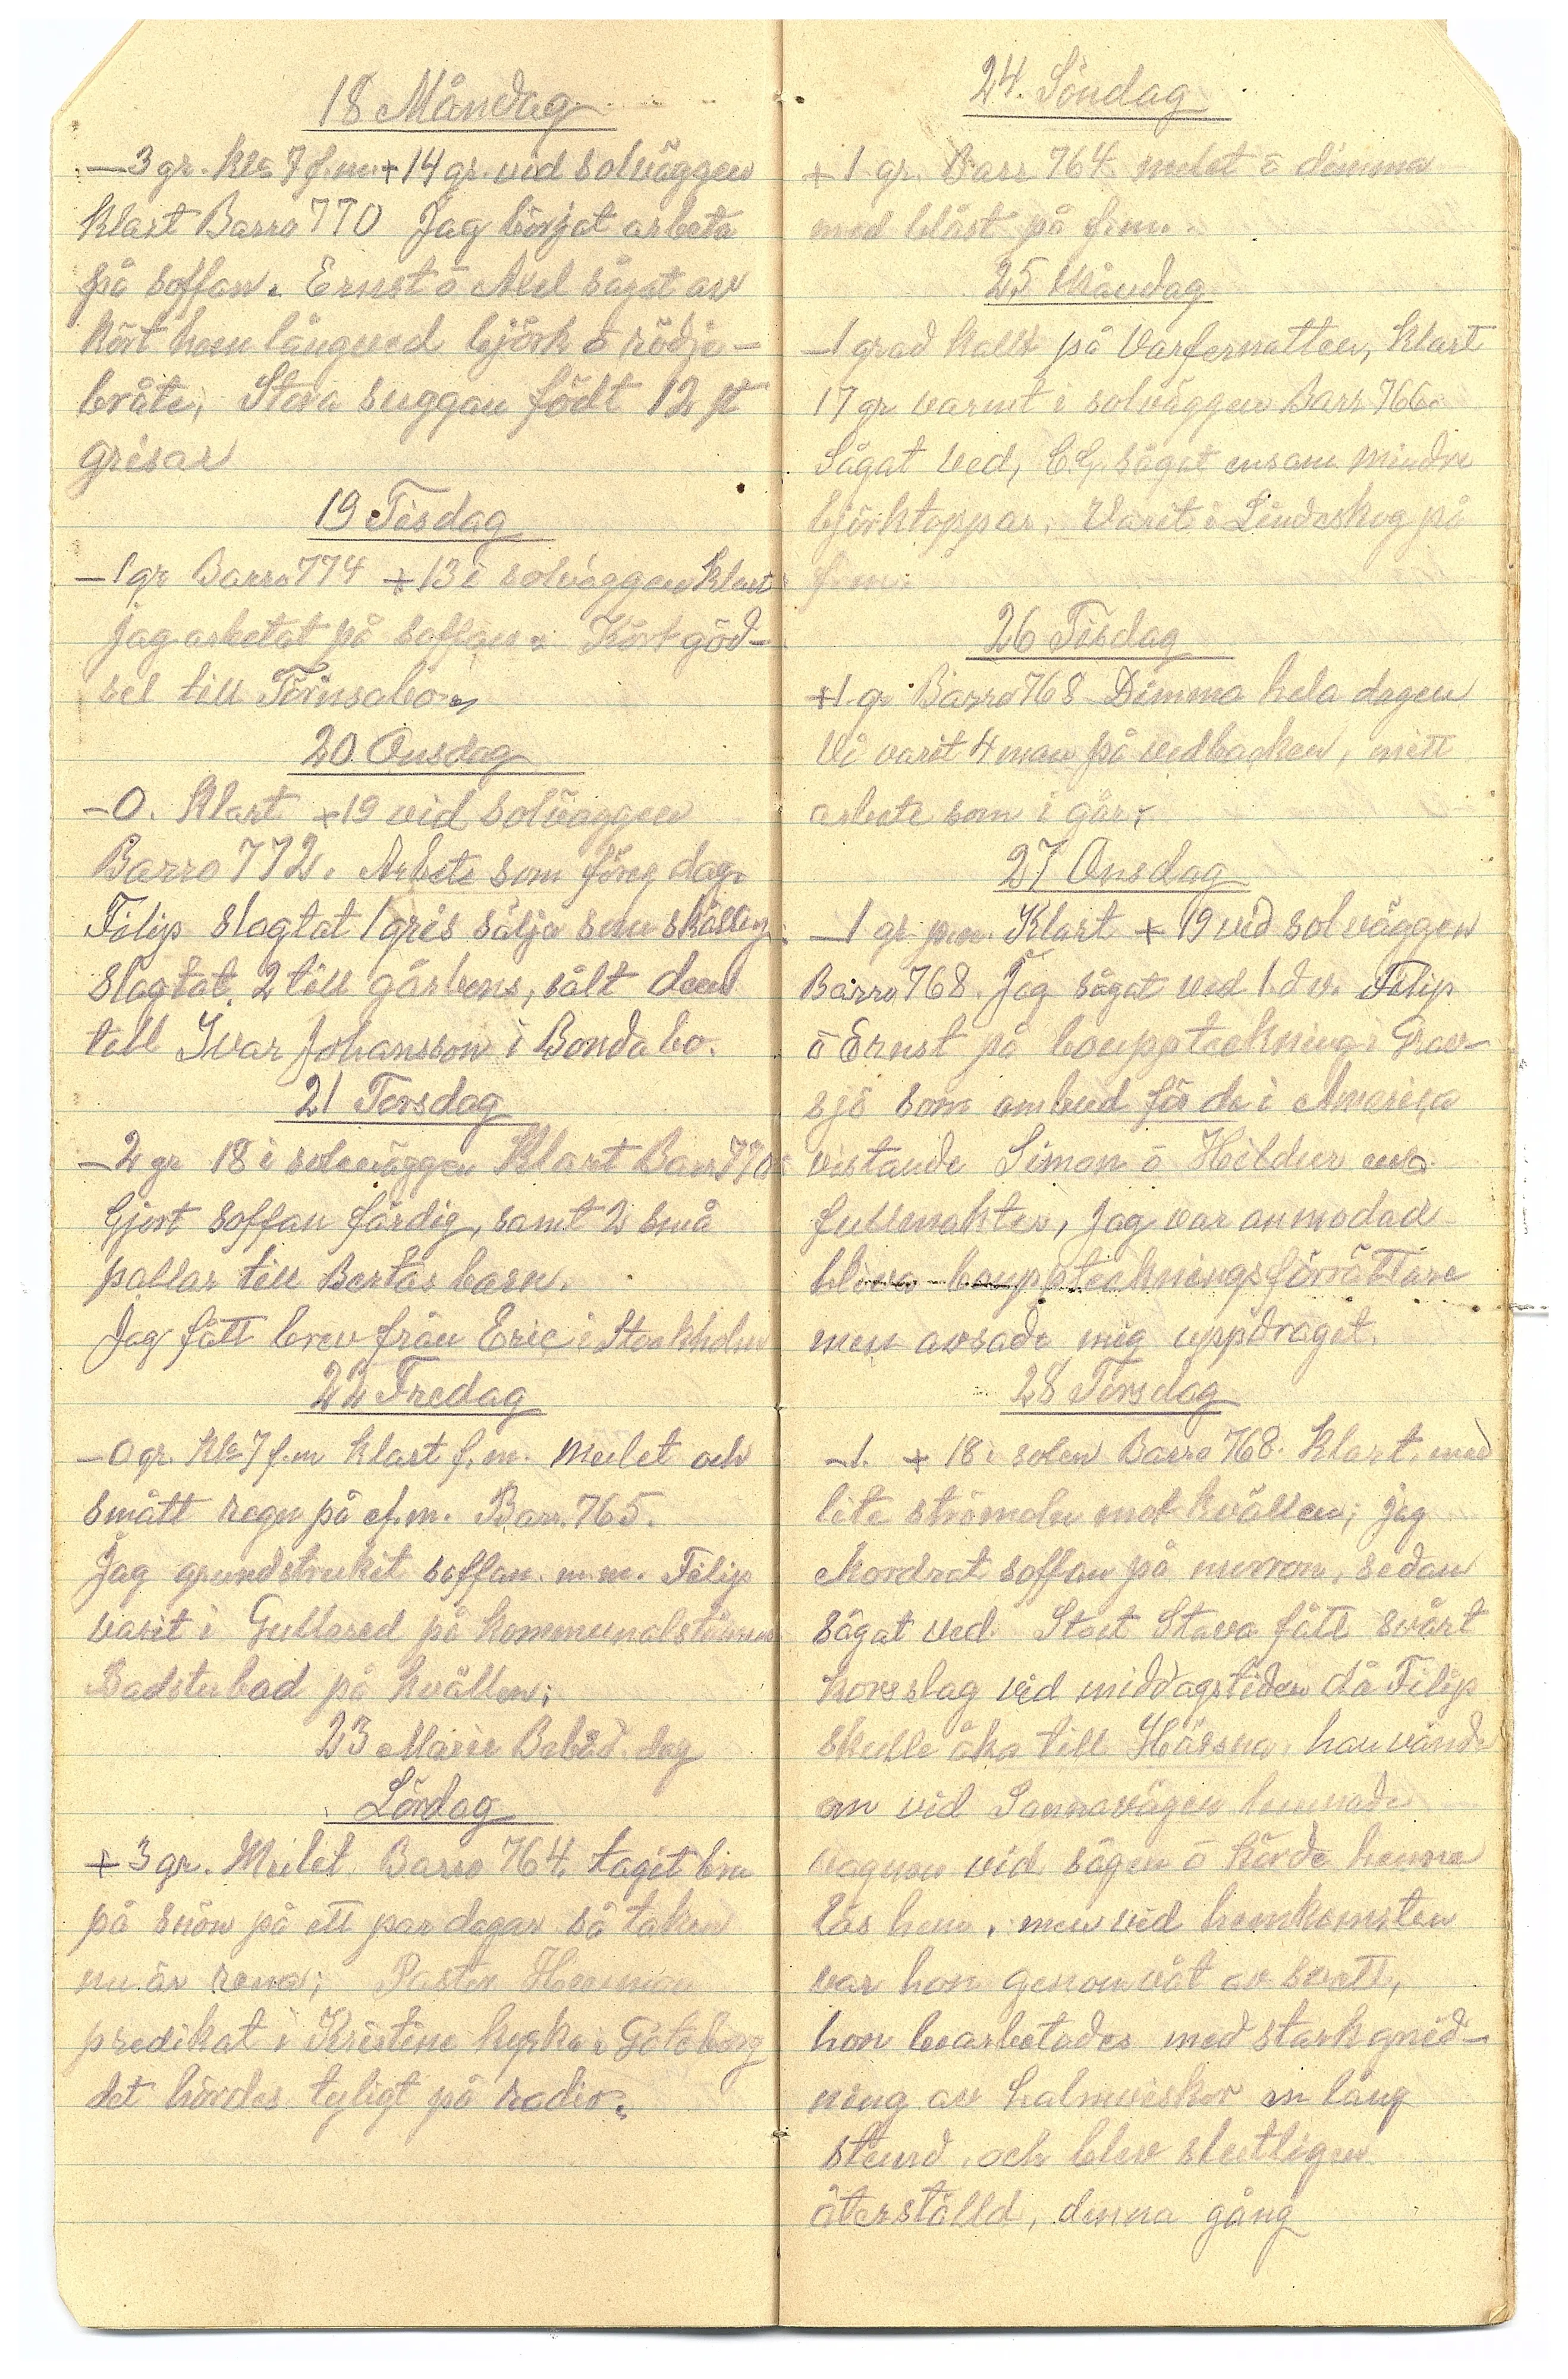 18 Måndag
—3 gr. Kl. 7 f.m. +14 gr. vid solväggen
Klart Barro 770 Jag börjat arbeta
på soffan. Ernst o Axel sågat av
kört hem långved björk o rödja-
bråte, Stora suggan födt 12 st
grisar
19 Tisdag
—1 gr Barro 774 +13 i solväggen Klart
jag arbetat på soffan. Kört göd-
sel till Törnsabo
20 Onsdag
—0. Klart +19 vid solväggen
Barro 772. Arbete som föreg dag.
Filip slagtat 1 gris sälja som skålling
slagtat 2 till gårbens, sålt dem
till Ivar Johansson i Bondabo.
21 Torsdag
—2 gr 18 i solväggen Klart Barr 770
Gjort soffan färdig, samt 2 små
pallar till Bertas barn.
Jag fått brev från Eric i Stockholm
22 Fredag
—0 gr. Kl. 7 f.m klart f.m. Mulet och
smått regn på ef.m. Barr. 765.
Jag grundstrukit soffan m.m. Filip
varit i Gullared på kommunalstämma
Badstubad på kvällen;
23 Marie Bebåd. dag
Lördag
+3 gr. Mulet Barro 764. tagit bra
på snön på ett par dagar så taken
nu är rena; Pastor
predikat i Kristine kyrka i Göteborg
det hördes tyligt på radio.
24. Söndag
+1 gr. Barr 764 mulet o dimma
med blåst på f.m.
25 Måndag
—1 grad kallt på Varfernatten, Klart
17 gr varmt i solväggen Barr 766
Sågat ved, C.G. sågat ensam mindre
björktoppar. Varit i Lindeskog på
f.m.
26 Tisdag
+1 gr Barro 768 Dimma hela dagen
Vi varit 4 man på vedbacken, mitt
arbete som i går,
27 Onsdag
—1 gr Klart +19 vid solväggen
Barro 768. Jag sågat ved Filip
o Ernst på bouppteckning i Grav-
sjö som ombud för de i America
vistande Simon o Hildur
fullmakter, Jag var anmodad
bliva bouppteckningsförrättare
men avsade mig uppdraget.
28 Torsdag
—1. +18 i solen Barro 768. Klart, med
lite strömoln mot kvällen; jag
Mordrat soffan på morron, sedan
sågat ved. Stoet Stava fått svårt
korsslag vid middagstiden då Filip
skulle åka till Hässna, han vände
om vid Sannavägen lemnade
vagnen vid sågen o körde henne
lös hem, men vid hemkomsten
var hon genomvåt av svett,
hon bearbetades med stark gnid-
ning av halmviskor en lång
stund och blev slutligen
återställd, denna gång